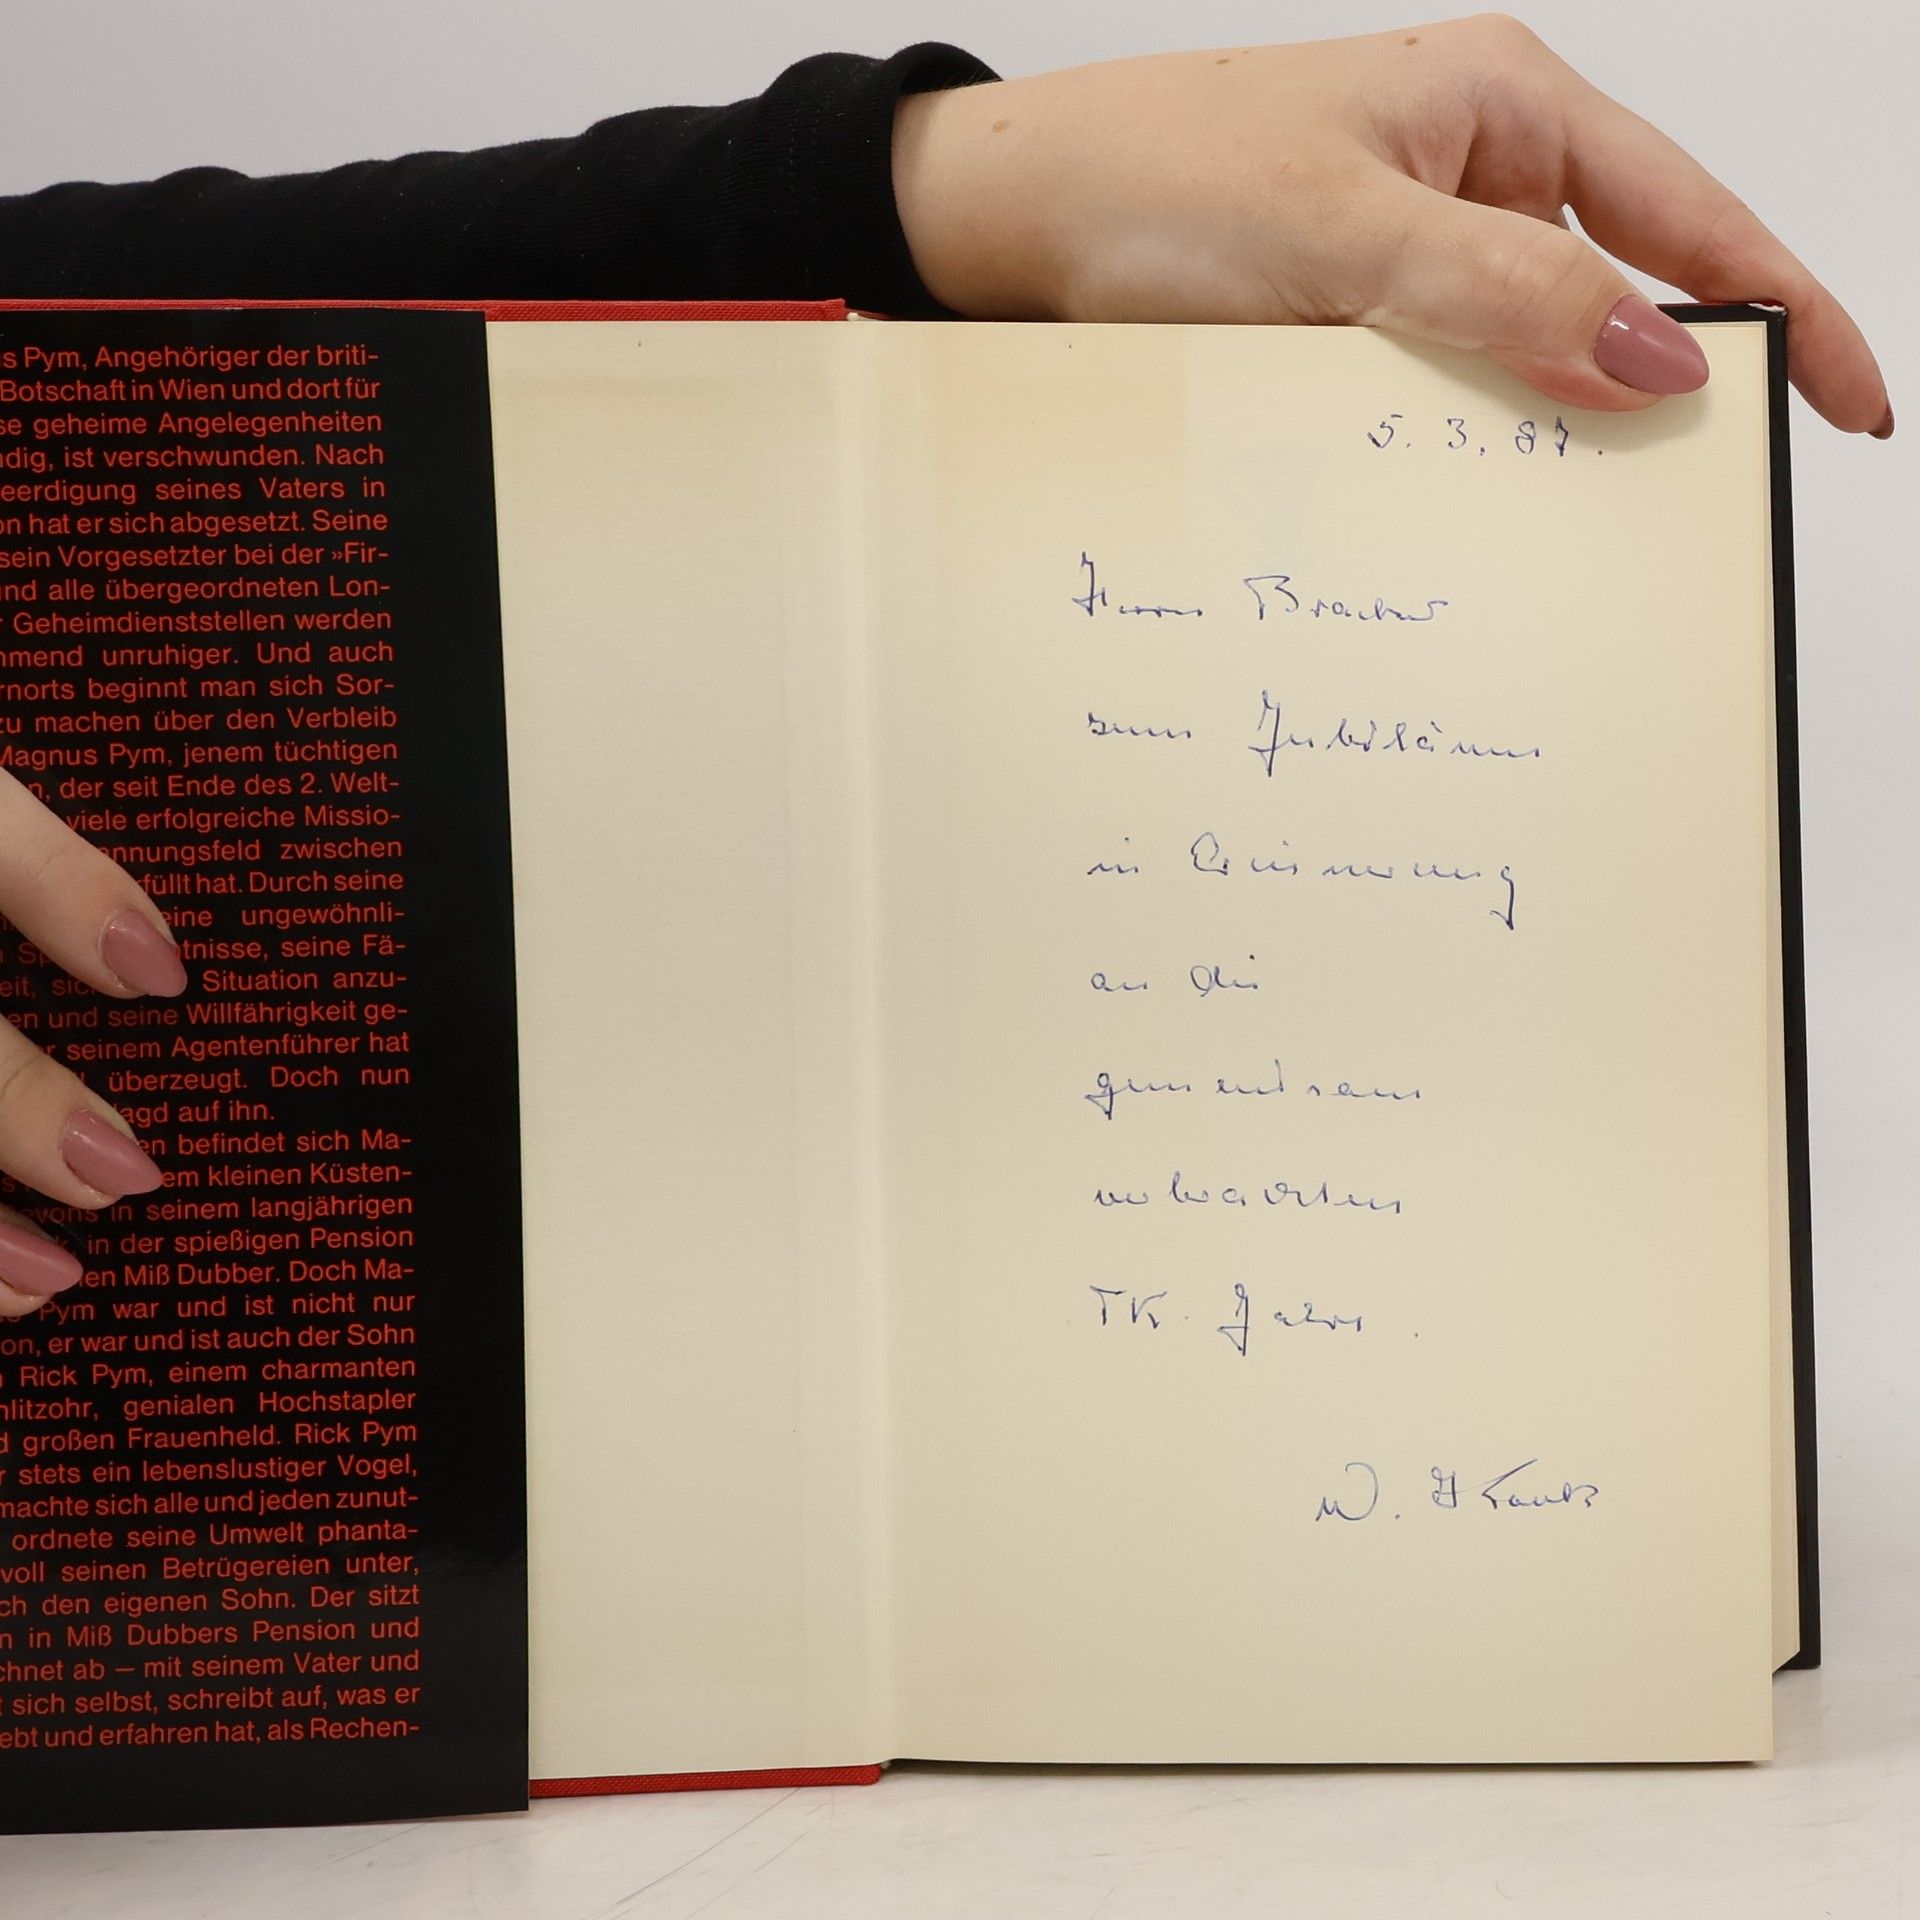 s Pym, Angehöriger der briti-
Botschaft in Wien und dort für
se geheime Angelegenheiten
ndig, ist verschwunden. Nach
eerdigung seines Vaters in
on hat er sich abgesetzt. Seine
sein Vorgesetzter bei der »Fir-
und alle übergeordneten Lon-
r Geheimdienststellen werden
hmend unruhiger. Und auch
rnorts beginnt man sich Sor-
zu machen über den Verbleib
Magnus Pym, jenem tüchtigen
n, der seit Ende des 2. Welt-
viele erfolgreiche Missio-
annungsfeld zwischen
rfüllt hat. Durch seine
eine ungewöhnli-
Sp tnisse, seine Fä-
eit, sic Situation anzu-
en und seine Willfährigkeit ge-
er seinem Agentenführer hat
überzeugt. Doch nun
Jagd auf ihn.
en befindet sich Ma-
em kleinen Küsten-
evons in seinem langjährigen
k, in der spießigen Pension
len Miß Dubber. Doch Ma-
Pym war und ist nicht nur
on, er war und ist auch der Sohn
n Rick Pym, einem charmanten
hlitzohr, genialen Hochstapler
d großen Frauenheld. Rick Pym
r stets ein lebenslustiger Vogel,
machte sich alle und jeden zunut-
ordnete seine Umwelt phanta-
voll seinen Betrügereien unter,
ch den eigenen Sohn. Der sitzt
n in Miß Dubbers Pension und
chnet ab – mit seinem Vater und
t sich selbst, schreibt auf, was er
ebt und erfahren hat, als Rechen-
5. 3. 87.
Herrn
zum Jubiläum
in Erinnerung
an die
gemeinsam
verbrachten
TK. Jahre.
W.